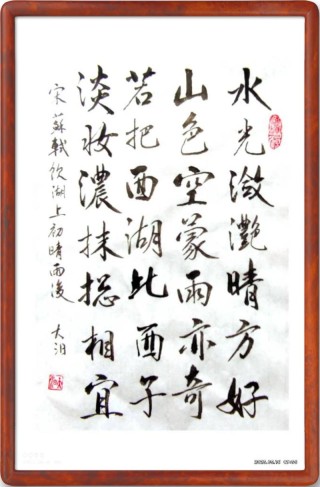 水光潋滟晴方好
山色空蒙雨亦奇
若把西湖比西子
淡妆浓抹总相宜
宋苏轼饮湖上初晴雨后 大汨